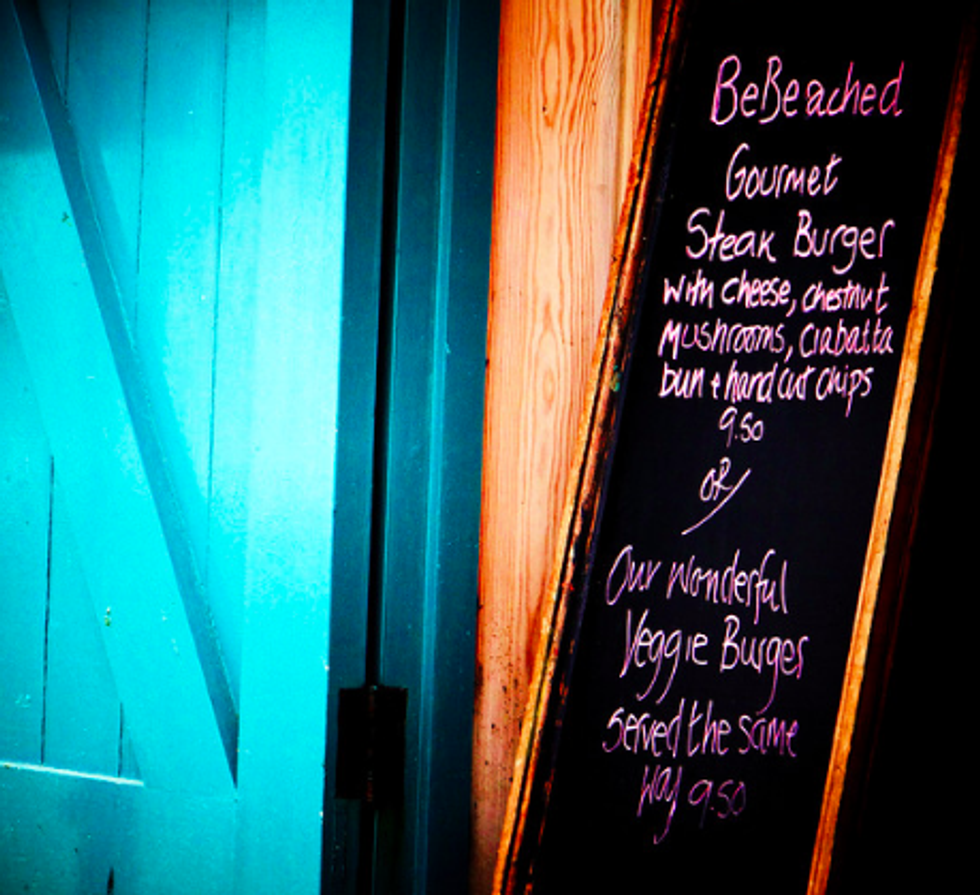 BeBeached
Gourmet
Steak Burger
with cheese, chestnut
mushrooms, ciabatta
bun + hand cut chips
9.50
OR
Our wonderful
Veggie Burger
served the same
way 9.50